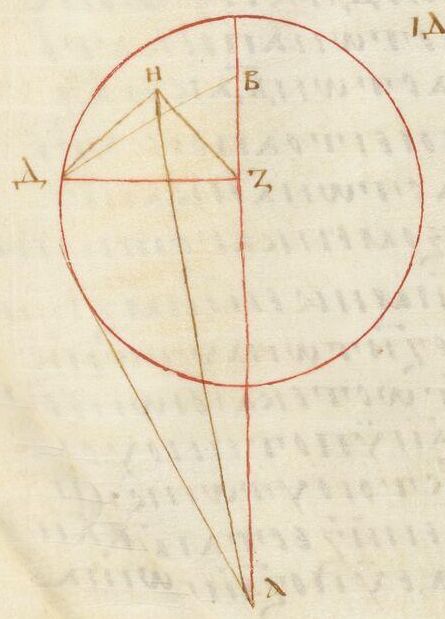 ΙΔ
Η
Β
Δ
Ζ
Α